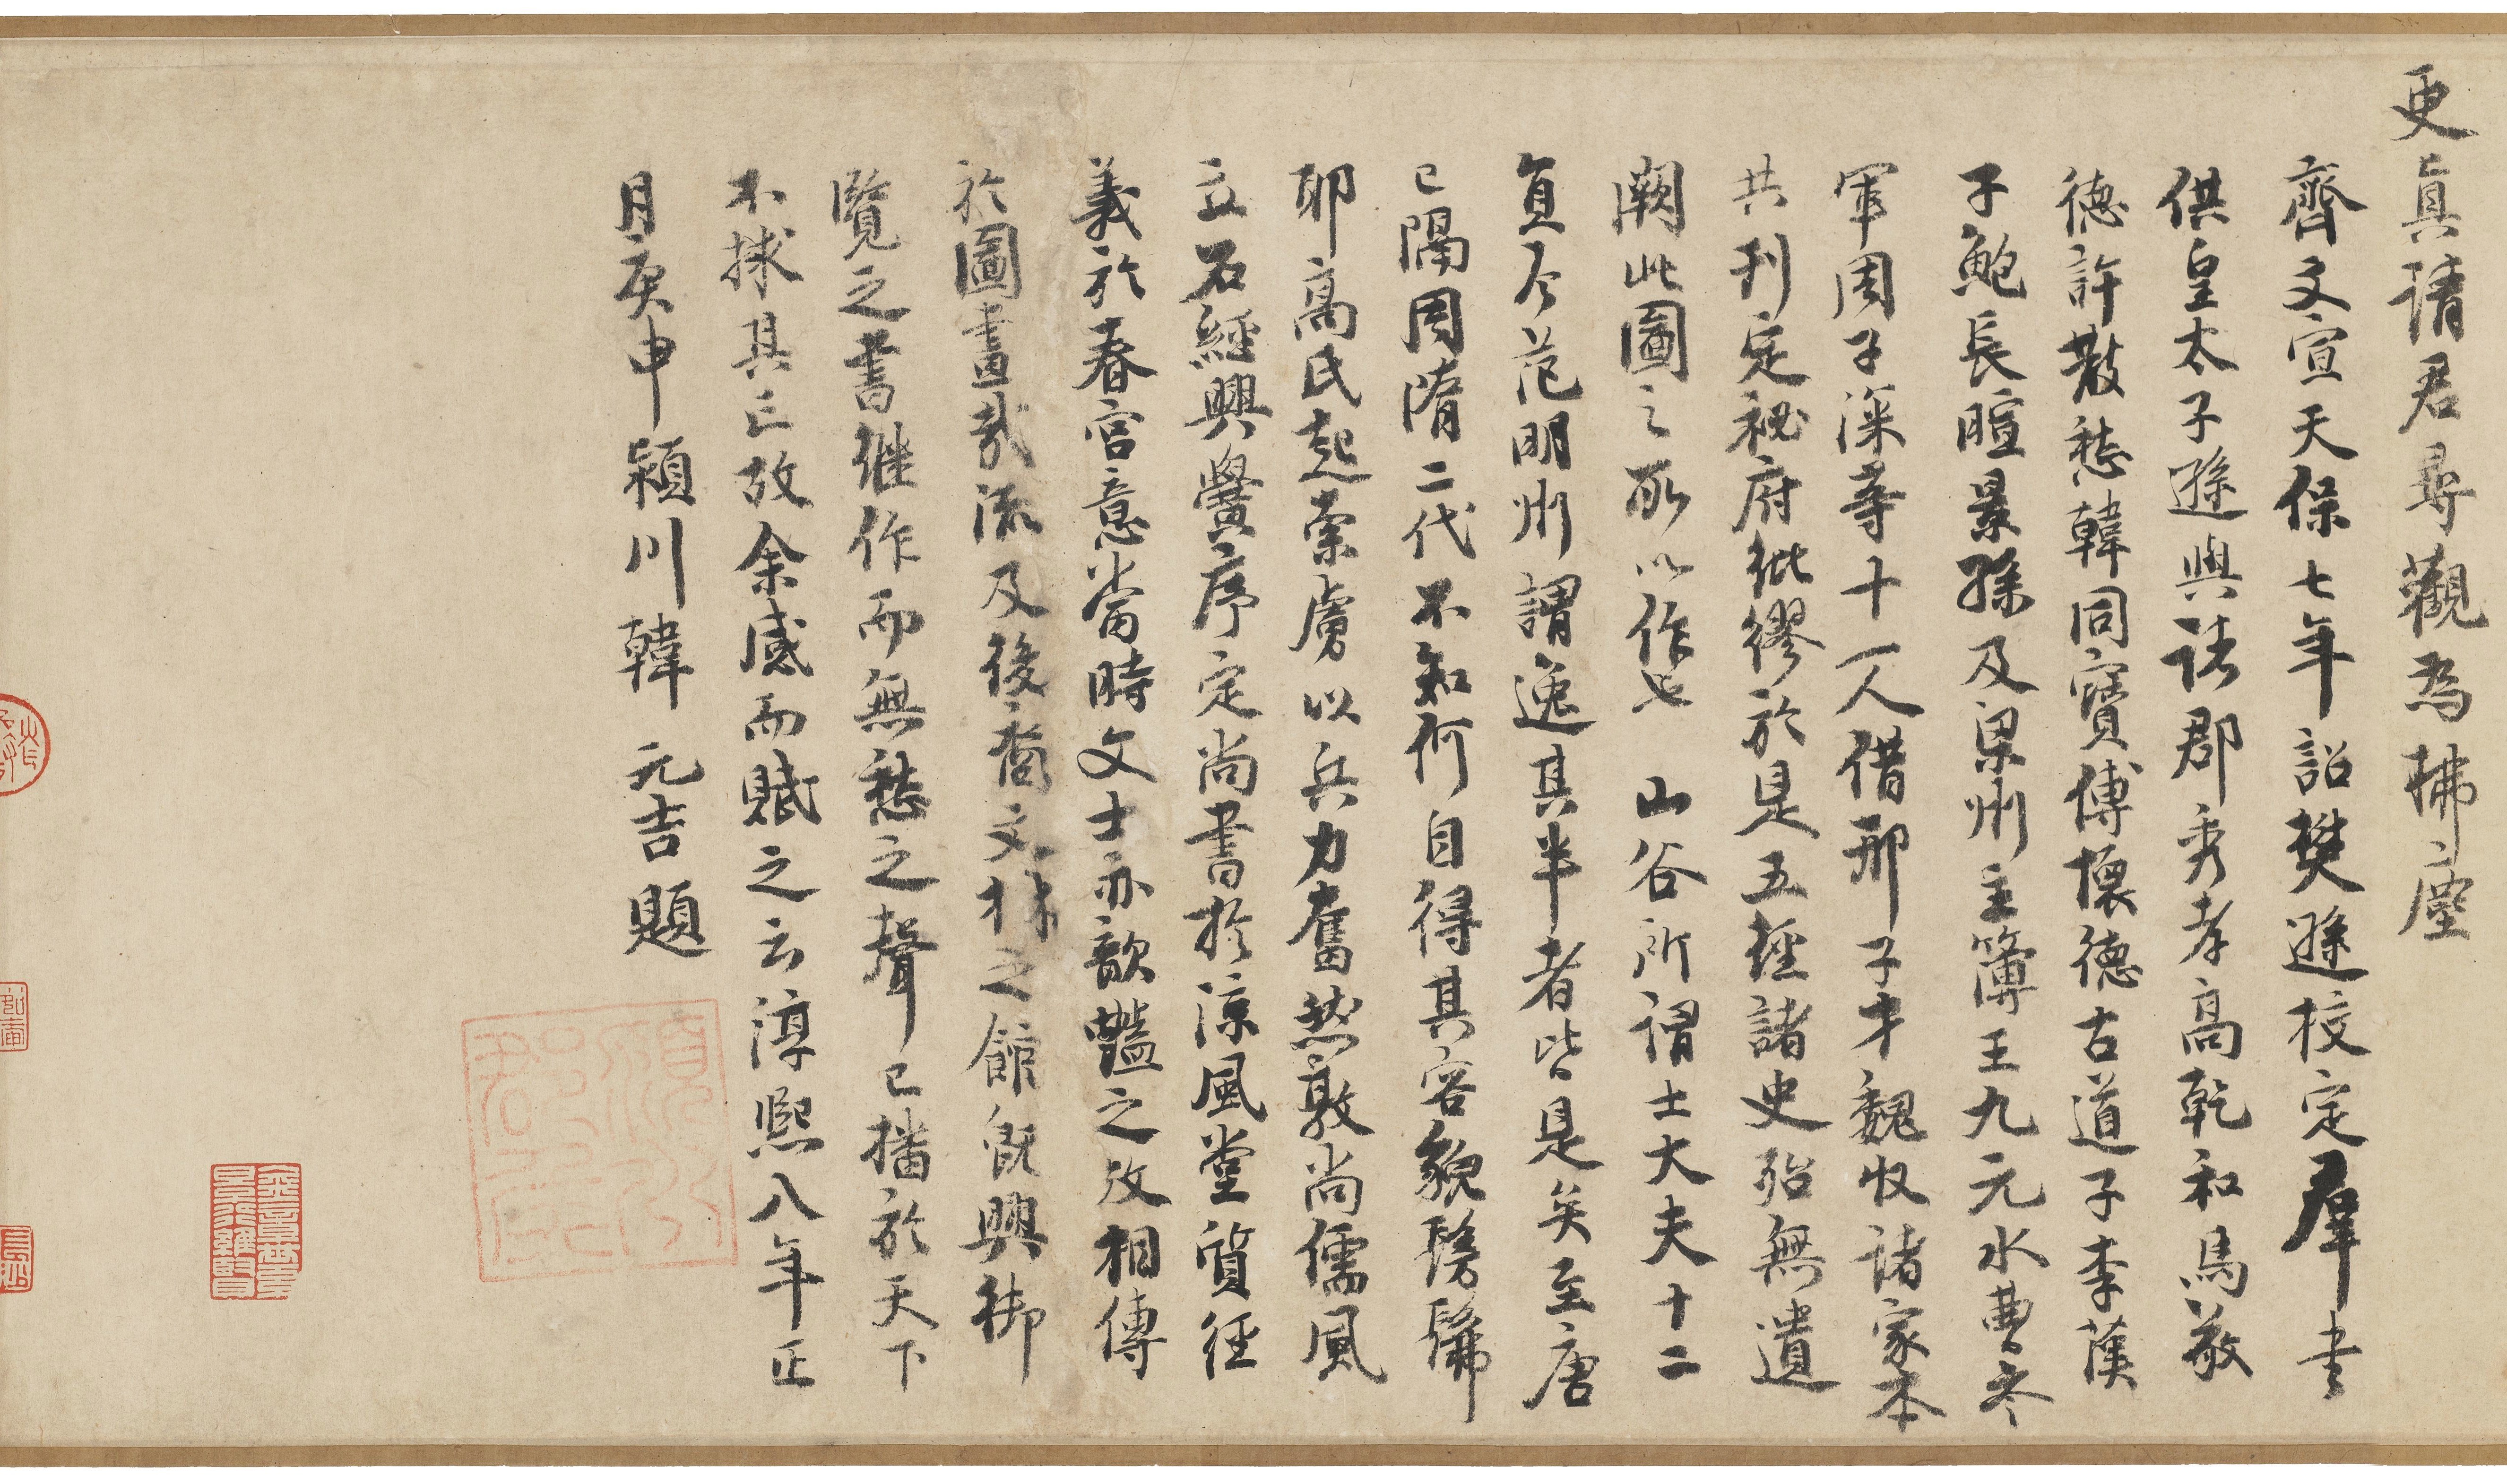 更真請君尋觀為拂塵
齊文宣天保七年詔樊遜校定羣書
供皇太子遜與諸郡秀孝高乾和馬敬
德許散愁韓同寶傅懷德古道子李漢
子鮑長暄景孫及梁州主簿王九元水曹參
軍周子深等十一人借邢子才魏收諸家本
共刊定秘府紕繆於是五經諸史殆無遺
闕此圖之所以作也山谷所謂士大夫十二
員今范明州謂逸其半者皆是矣至唐
已隔周隋二代不知何自得其容貌髣髴
耶高氏起索虜以兵力奮然敦尚儒風
立石經興黌序定尚書於涼風堂質經
義於春宮意當時文士亦歆豔之故相傳
於圖畫哉流及後裔文林之館既興御
覽之書继作而無愁之聲已播於天下
不捄其亡故余感而賦之云淳熙八年正
月庚申潁川韓元吉題